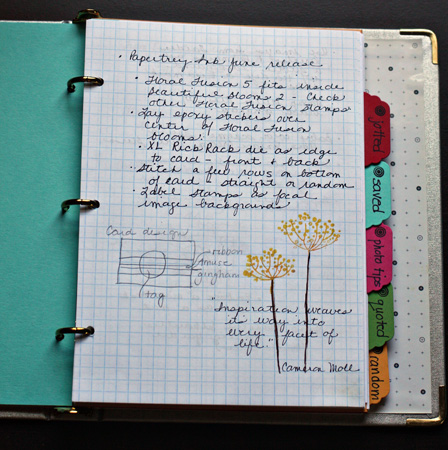 • Papertrey Ink June release
• Floral Fusion 5 fits inside
Beautiful Blooms 2 - Check
other Floral Fusion stamps
• Lay epoxy stickers over
center of Floral Fusion
blooms!
• XL Rick Rack die as edge
to card - front & back
• Stitch a few rows on bottom
of card - straight or random
• Label stamps as focal
image backgrounds
Card design
ribbon
gingham
tag
"Inspiration weaves
its way into
every facet of
life."
Cameron Moll
jotted
saved
photo tips
quoted
random